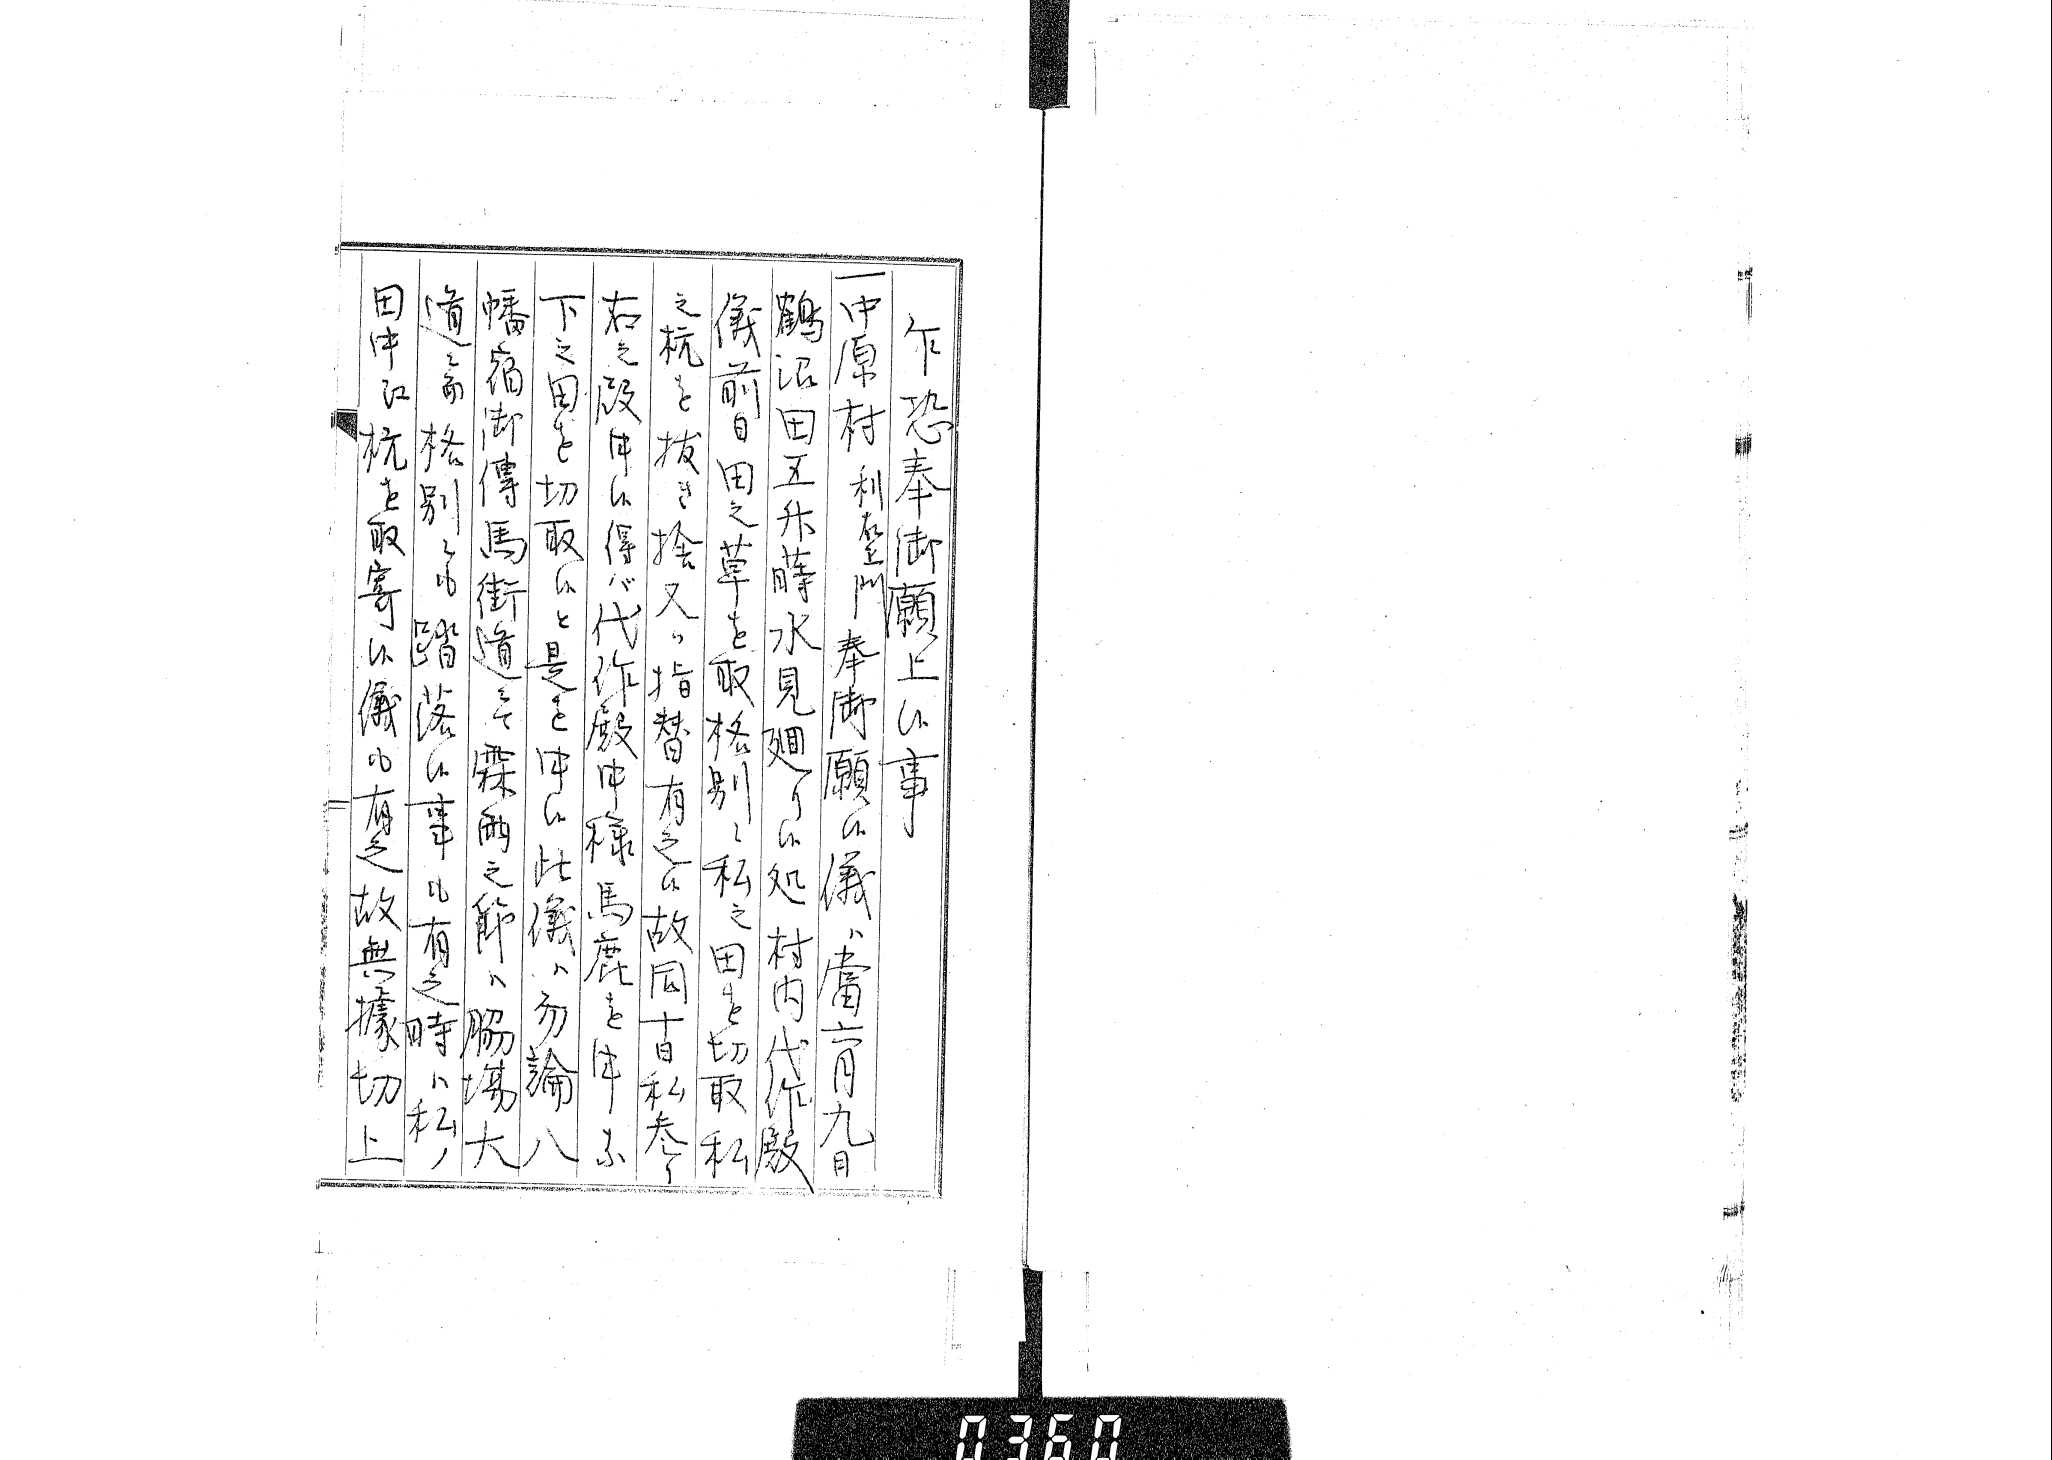 乍恐奉御願上候事
一中原村利左衛門奉御願候儀ハ當六月九日
鶴沼田五升蒔水見廻り候処村内代作殿
儀前日田之草を取格別ニ私之田を切取私
之杭を抜き捨又ハ指替有之候故同十日私参り
右之段申候得バ代作殿申様馬鹿を申な
下之田を切取候と是を申候此儀ハ勿論八
幡宿御傳馬街道ニて霖雨之節ハ脇場大
道ニ而格別ニも踏落候事も有之時ハ私ノ
田中江杭を取寄候儀も有之故無據切上
0360